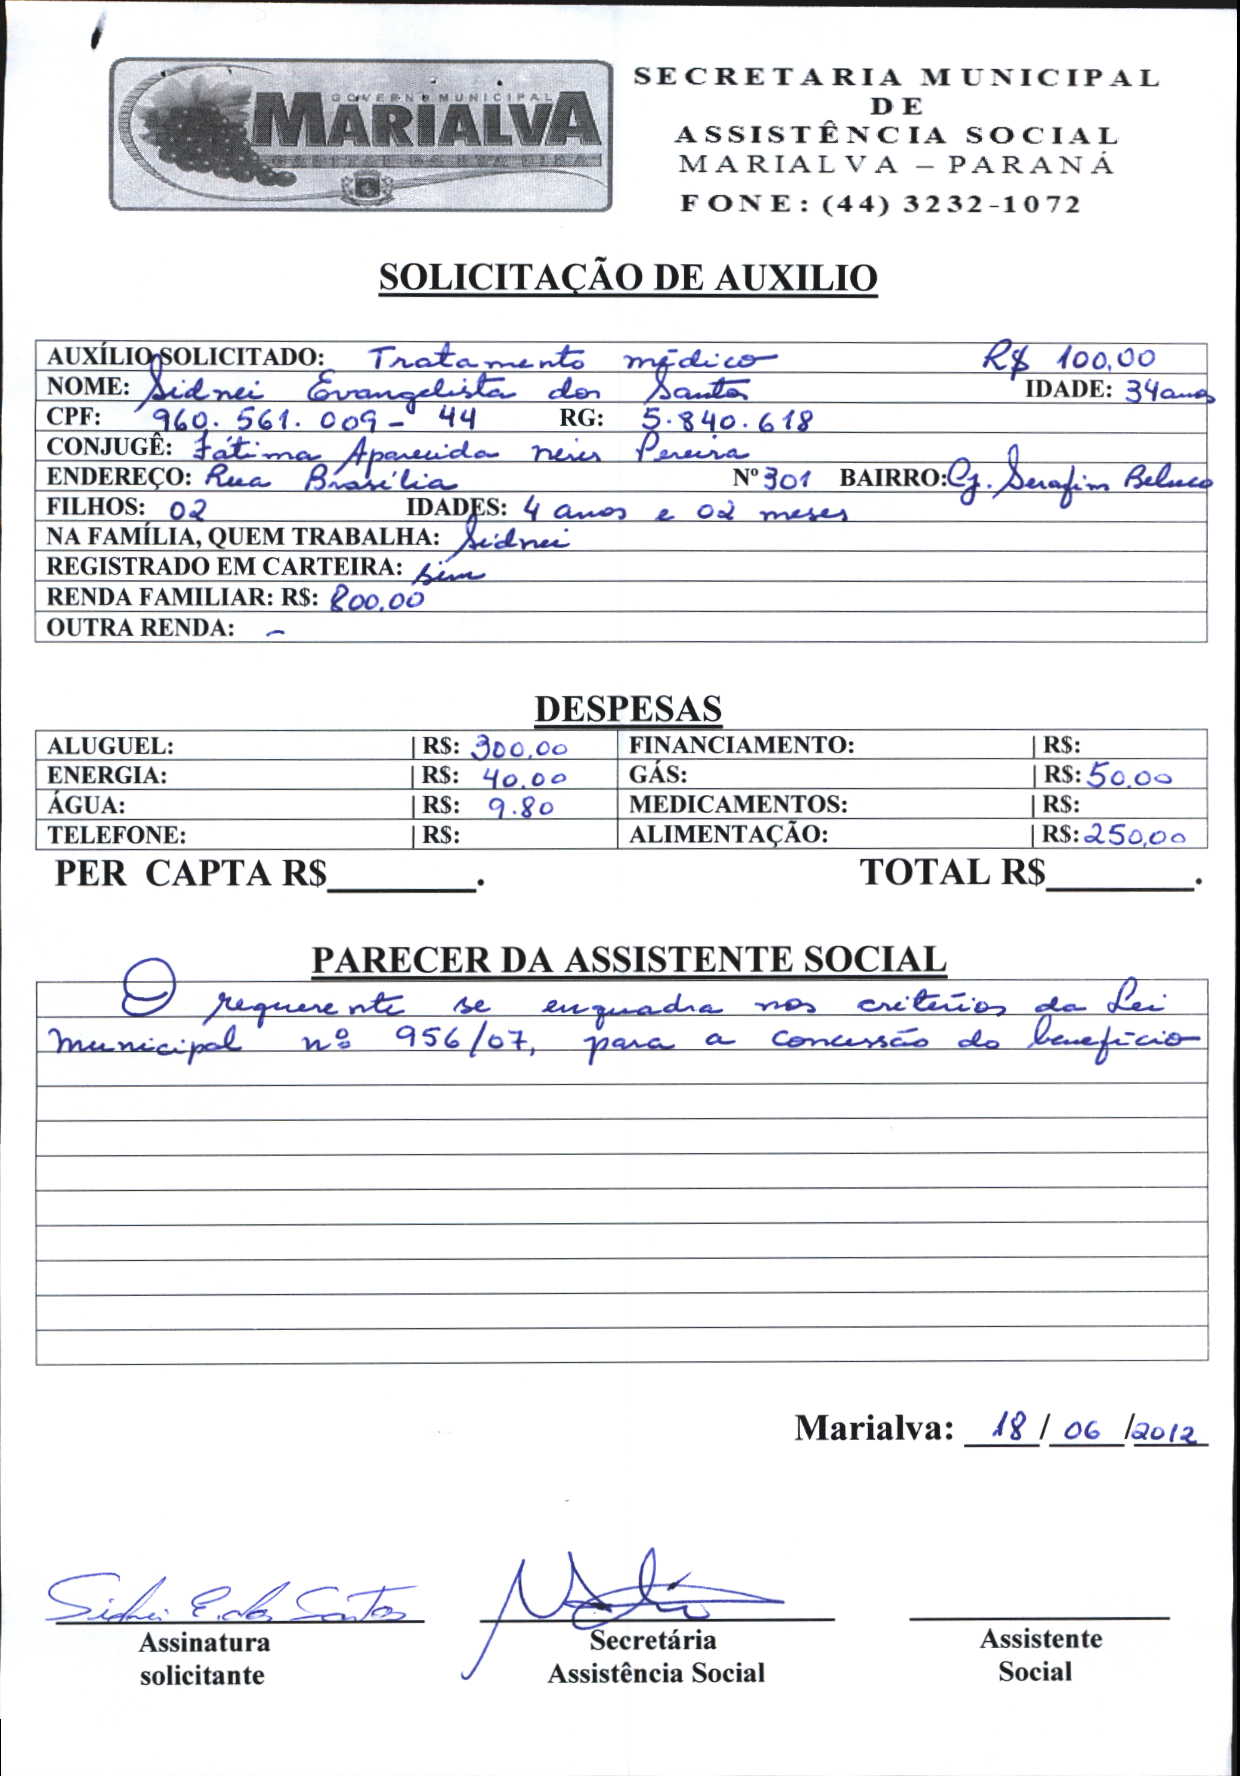 GOVERNO MUNICIPAL
MARIALVA
CAPITAL DA UVA FINA
SECRETARIA MUNICIPAL
DE
ASSISTÊNCIA SOCIAL
MARIALVA – PARANÁ
FONE: (44) 3232-1072
SOLICITAÇÃO DE AUXILIO
AUXÍLIO SOLICITADO: Tratamento médico R$ 100,00
NOME: Sidnei Evangelista dos Santos IDADE: 34 anos
CPF: 960.561.009-44 RG: 5.840.618
CONJUGÊ: Fátima Aparecida Neves Pereira
ENDEREÇO: Rua Brasília Nº 301 BAIRRO: Cj. Serafim Beluco
FILHOS: 02 IDADES: 4 anos e 02 meses
NA FAMÍLIA, QUEM TRABALHA: Sidnei
REGISTRADO EM CARTEIRA: sim
RENDA FAMILIAR: R$: 800,00
OUTRA RENDA: -
DESPESAS
ALUGUEL: | R$: 300,00 FINANCIAMENTO: | R$:
ENERGIA: | R$: 40,00 GÁS: | R$: 50,00
ÁGUA: | R$: 9.80 MEDICAMENTOS: | R$:
TELEFONE: | R$: ALIMENTAÇÃO: | R$: 250,00
PER CAPTA R$________. TOTAL R$________.
PARECER DA ASSISTENTE SOCIAL
O requerente se enquadra nos critérios da Lei
Municipal nº 956/07, para a concessão do benefício
Marialva: 18/06/2012
Sidnei E. dos Santos
Assinatura Secretária Assistente
solicitante Assistência Social Social